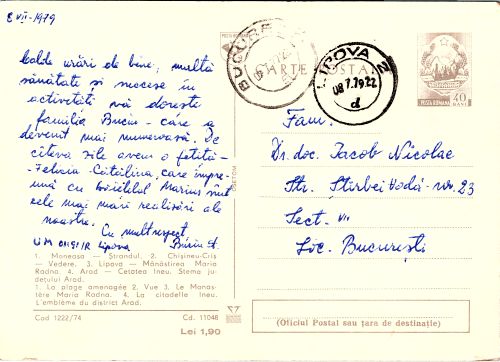 8 VII-1979
Calde urări de bine, multă
sănătate și succese în
activități vă dorește
familia Buciu - care a
devenit mai numeroasă. De
cîteva zile avem o fetiță -
Felicia-Cătălina, care împre-
ună cu băiețelul Marius sînt
cele mai mari realizări ale
noastre.
Cu mult respect,
UM 01151/R Lipova
1. Moneasa — Ștrandul. 2. Chișineu-Criș
— Vedere. 3. Lipova — Mănăstirea Maria
Radna. 4. Arad — Cetatea Ineu. Stema ju-
dețului Arad.
1. La plage amenagée 2. Vue 3. Le Monas-
tère Maria Radna. 4. La citadelle Ineu.
L'emblème du district Arad.
Cod 1222/74 Cd. 11048
Lei 1,90
CARTE POSTALĂ
BUCUREȘTI
LIPOVA
08.7.79.22
d
POSTA ROMANA
40
BANI
Fam.
Dr. doc. Iacob Nicolae
Str. Știrbei Vodă - nr. 23
Sect. VII
Loc. București
(Oficiul Postal sau țara de destinație)